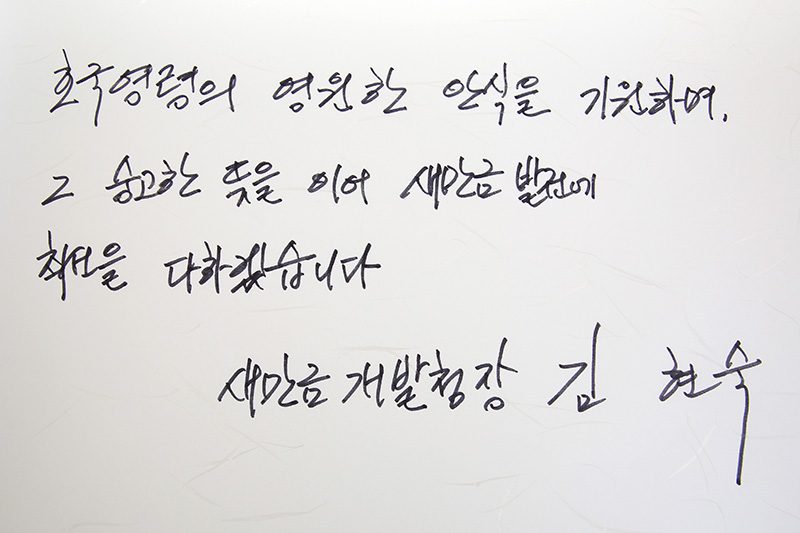 호국영령의 영원한 안식을 기원하며,
그 숭고한 뜻을 이어 새만금 발전에
최선을 다하겠습니다
새만금개발청장 김 현숙